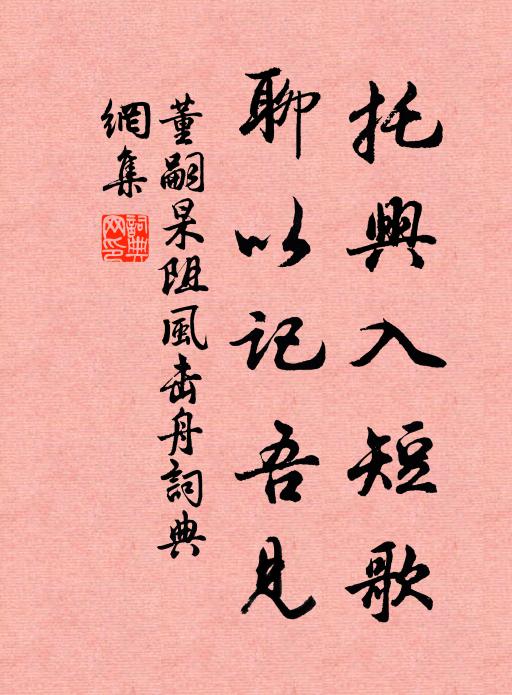 托興入短歌
聊以記吾見
董嗣杲阻風壵舟詞典
網集
詞典
网印